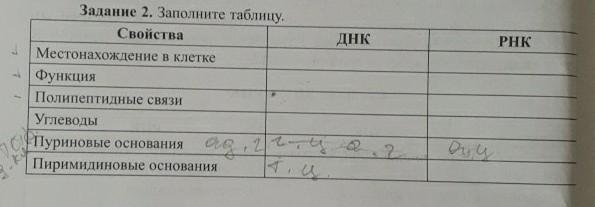 Задание 2. Заполните таблицу.
Свойства ДНК РНК
Местонахождение в клетке
Функция
Полипептидные связи
Углеводы
Пуриновые основания
Пиримидиновые основания Т. ц.